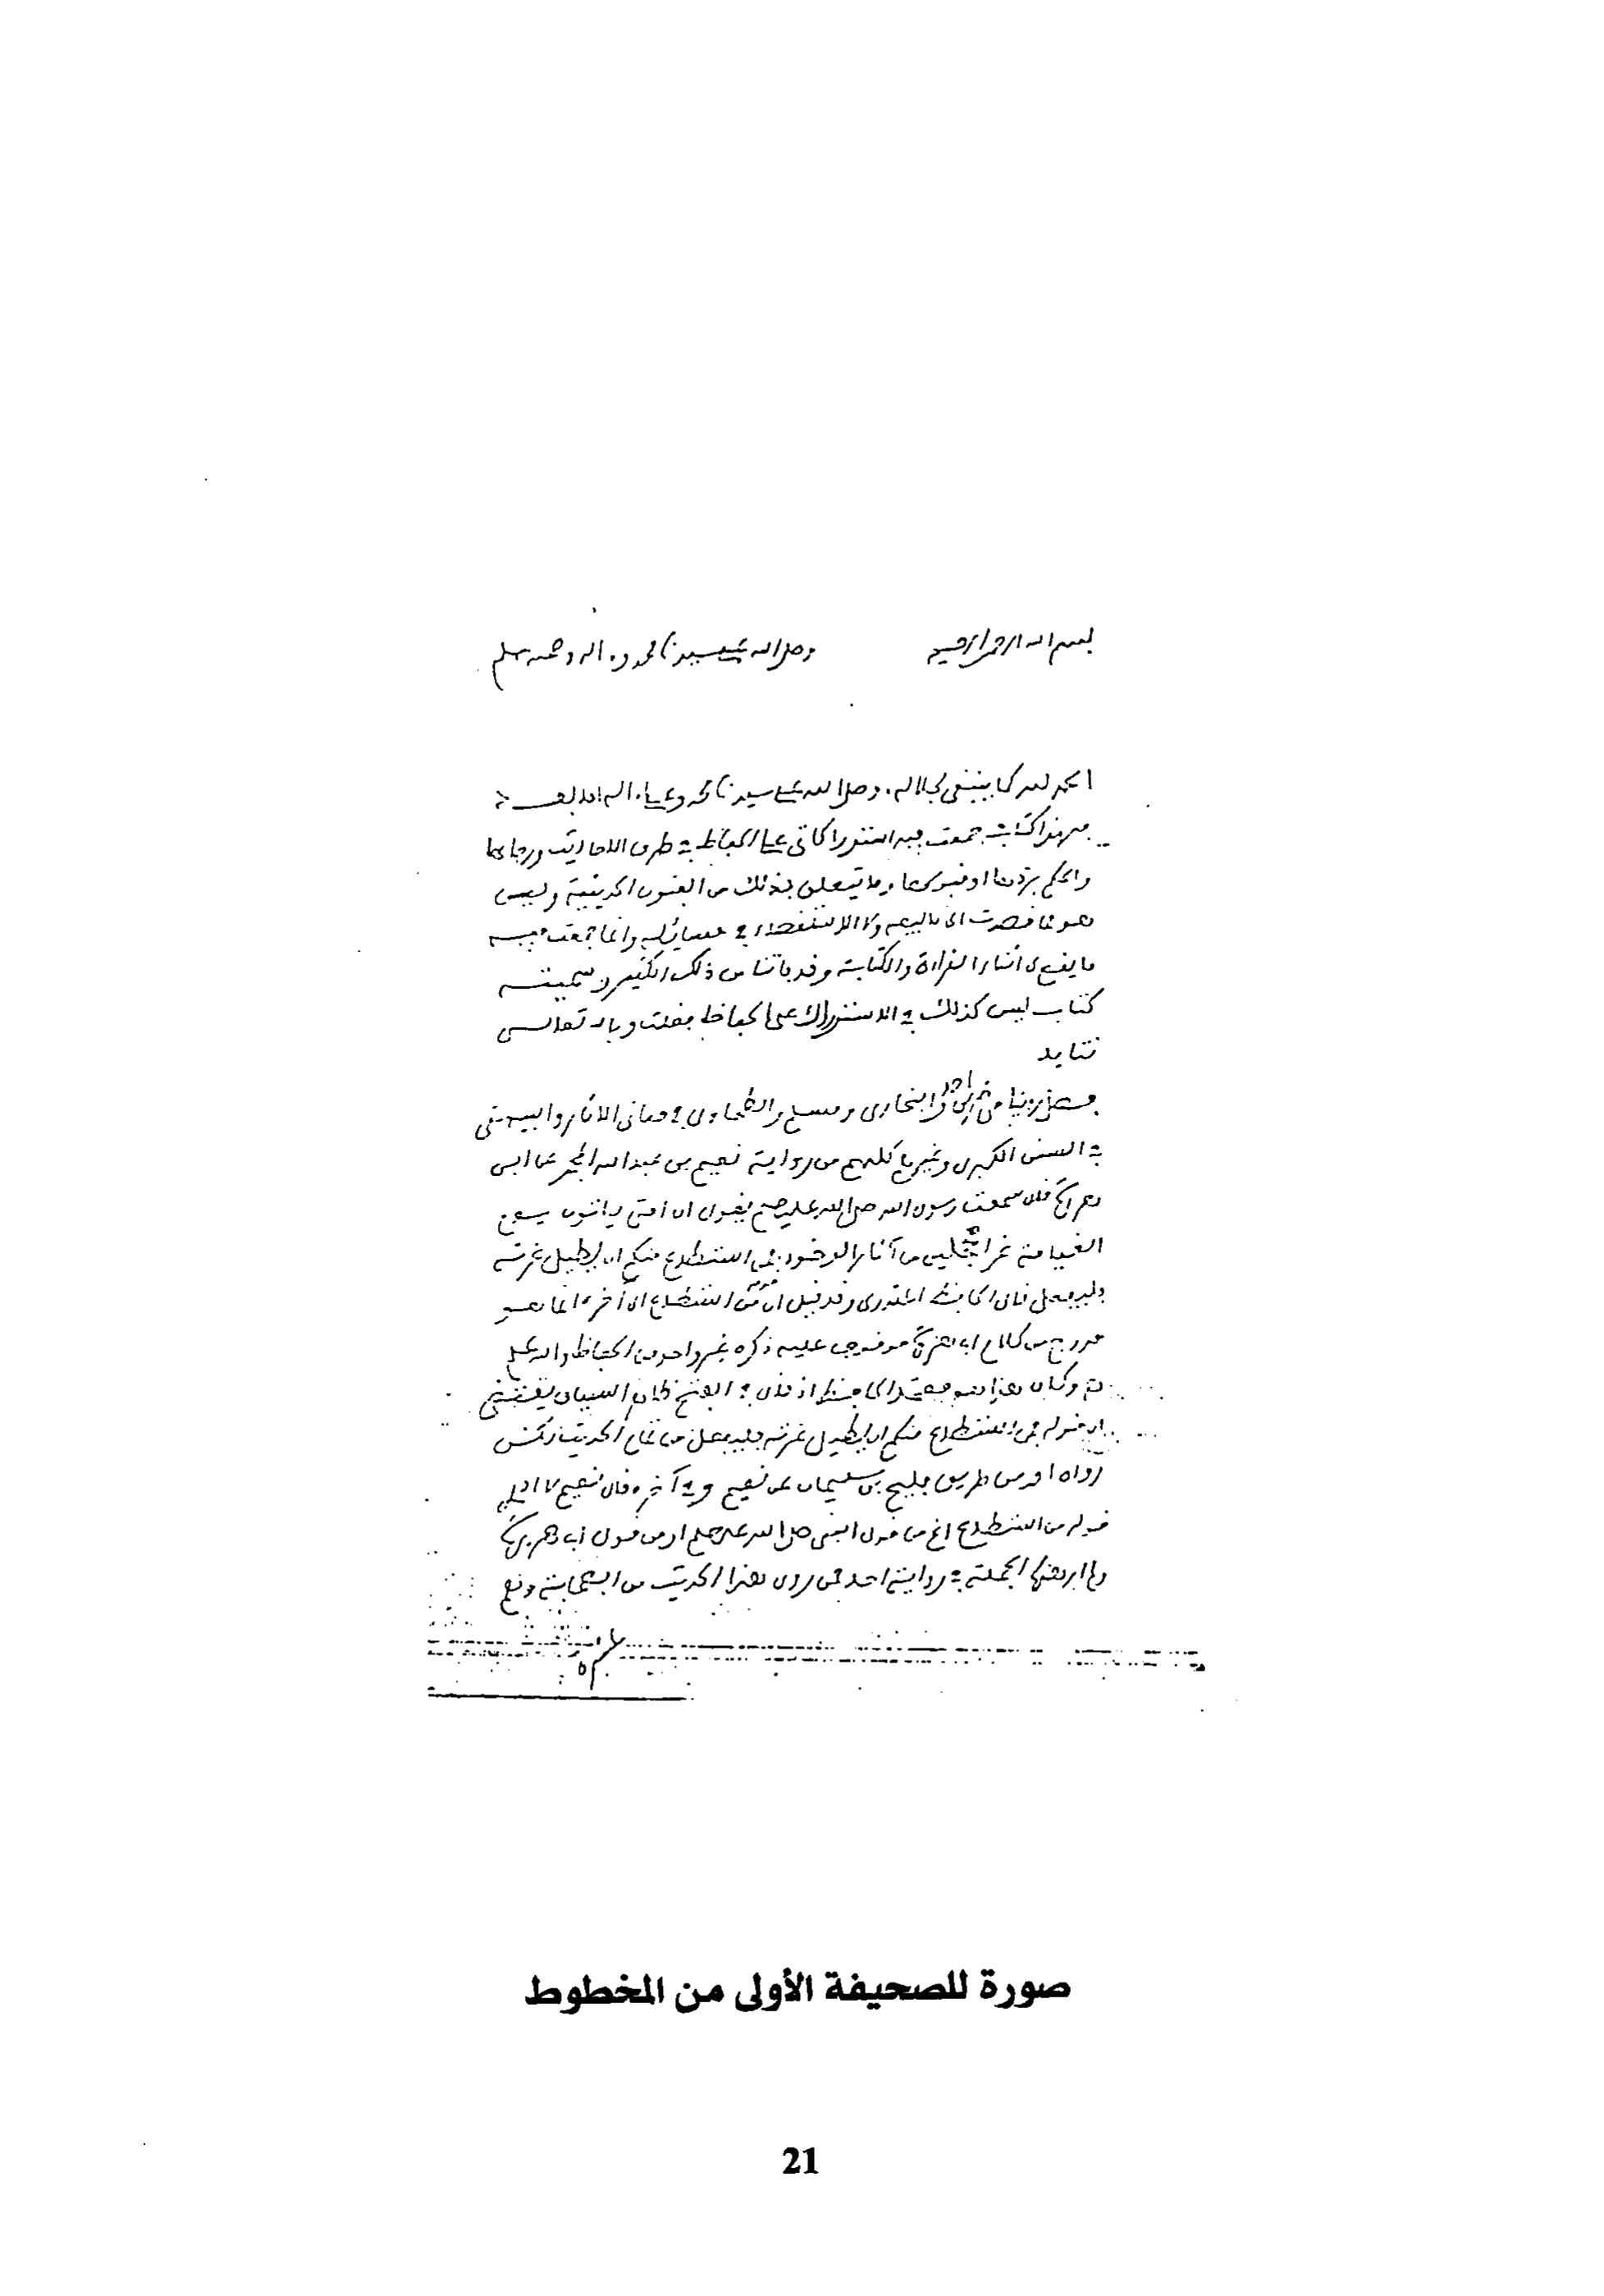 بسم الله الرحمن الرحيم وصلى الله على سيدنا محمد وآله وصحبه وسلم
الحمد لله كما ينبغي لجلاله، وصلى الله على سيدنا محمد وعلى آله أما بعد
فهذا كتاب جمعت فيه استدراكاتي على الحفاظ في طرق الأحاديث ورجالها
والحكم بردها أو قبولها وما يتعلق بذلك من الفنون الحديثية وليس
هو مما قصدت إلى تأليفه ولا الاستقصاء في مسائله وإنما جمعت فيه
ما يقع لي أثناء القراءة والكتابة وقد فاتنا من ذلك الكثير وسميته
كتاب ليس كذلك في الاستدراك على الحفاظ فقلت وبالله تعالى
نتأيد
فصل روينا من أحمد والبخاري ومسلم والطحاوي في معاني الآثار والبيهقي
في السنن الكبرى وغيرهم كلهم من رواية نعيم بن عبد الله المجمر عن أبي
هريرة قال سمعت رسول الله صلى الله عليه وسلم يقول إن أمتي يأتون يوم
القيامة غرا محجلين من آثار الوضوء فمن استطاع منكم أن يطيل غرته
فليفعل قال الحافظ المنذري وقد قيل إن قوله من استطاع إلى آخره إنما هو
مدرج من كلام أبي هريرة موقوف عليه ذكره غير واحد من الحفاظ والله أعلم
وكان هذا هو معتمد الحافظ إذ قال في الفتح ظاهر السياق يقتضي
أن قوله فمن استطاع منكم أن يطيل غرته فليفعل من تمام الحديث لكن
رواه أحمد من طريق فليح بن سليمان عن نعيم وفي آخره قال نعيم لا أدري
قوله من استطاع الخ من قول النبي صلى الله عليه وسلم أو من قول أبي هريرة
ولم أر هذه الجملة في رواية أحد ممن روى هذا الحديث من الصحابة وهم
صورة للصحيفة الأولى من المخطوط
21